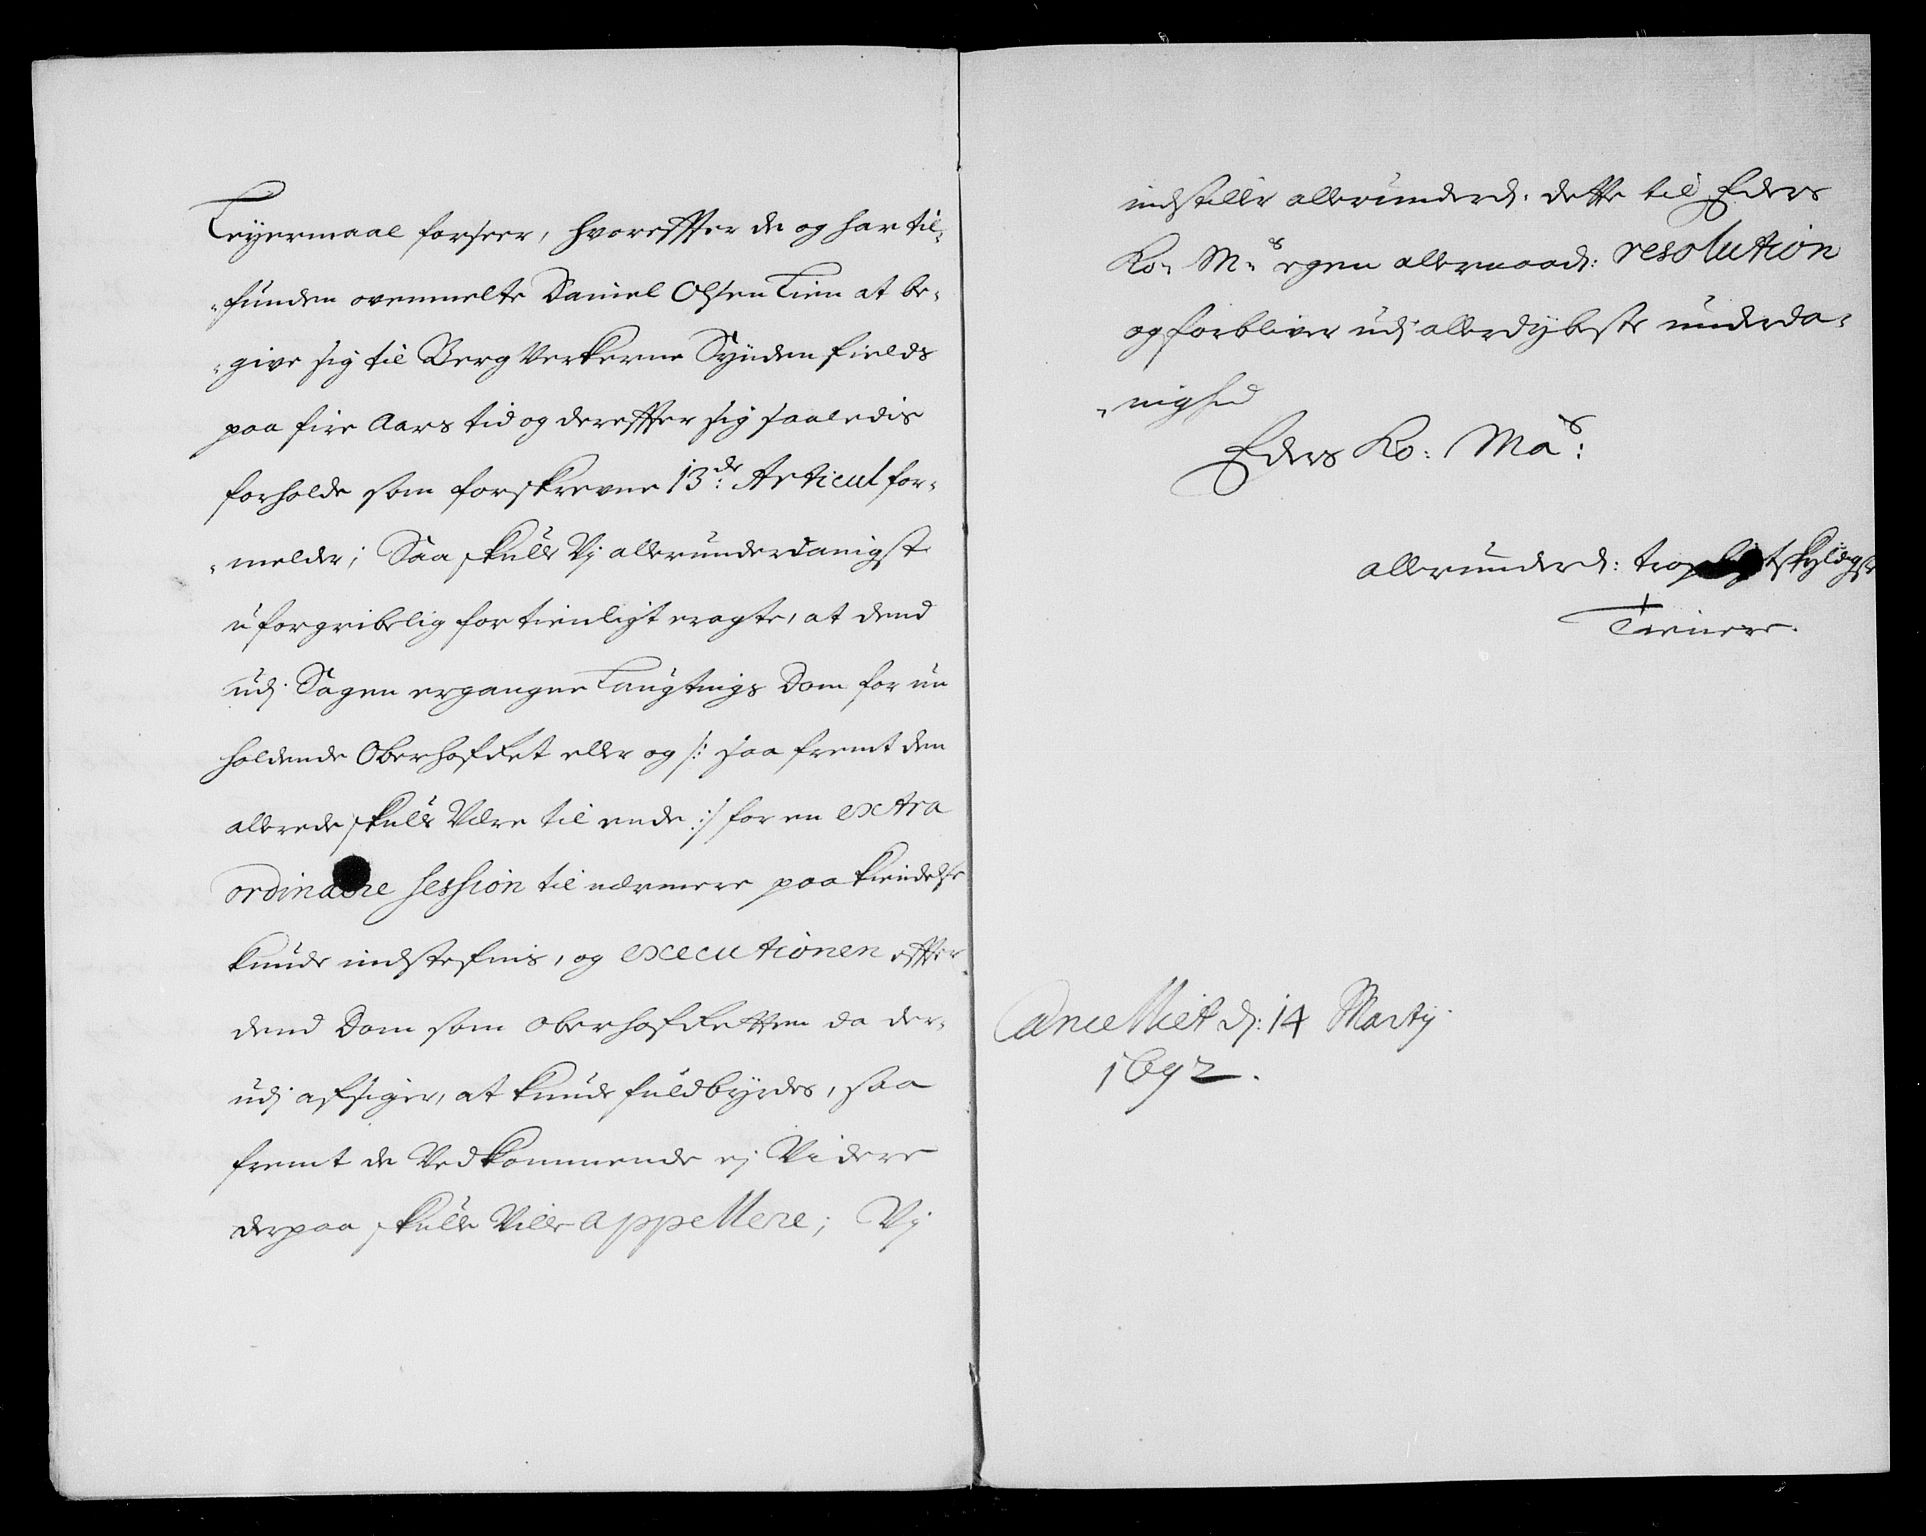 Leyermaal forseer, hvoreffter de og har til-
-funden ovenmelte Daniel Olsen Lien at be-
-give sig til Berg Verkerne Synden fields
paa fire Aars tid og dereffter sig saaledis
forholde som forskrevne 13de: Articul for-
-melder; Saa skulle Vj allerunderdanigst
uforgribelig fortienligt eragte, at dend
udj Sagen ergangne Laugtings Dom for nu
holdende OberhofRet eller og /: saa fremt den
allerede skulle Være til ende :/ for en extra
ordinaere session til nærmere paakiendelse
kunde indstefnis, og executionen effter
dend Dom som oberhofRetten da der-
udj afsiger, at kunde fuldbyrdes, saa
fremt de Vedkommende ej Videre
derpaa skulle Ville appellere; Vj
indstiller allerunderd: dette til Eders
Ko: Ms egen allernaad: resolution
og forbliver udj allerdybeste underda-
-nighed
Eders Ko: Mas:
allerunderd: troepligtskyldigste
Tienere.
Cancelliet d: 14 Martij
1692.